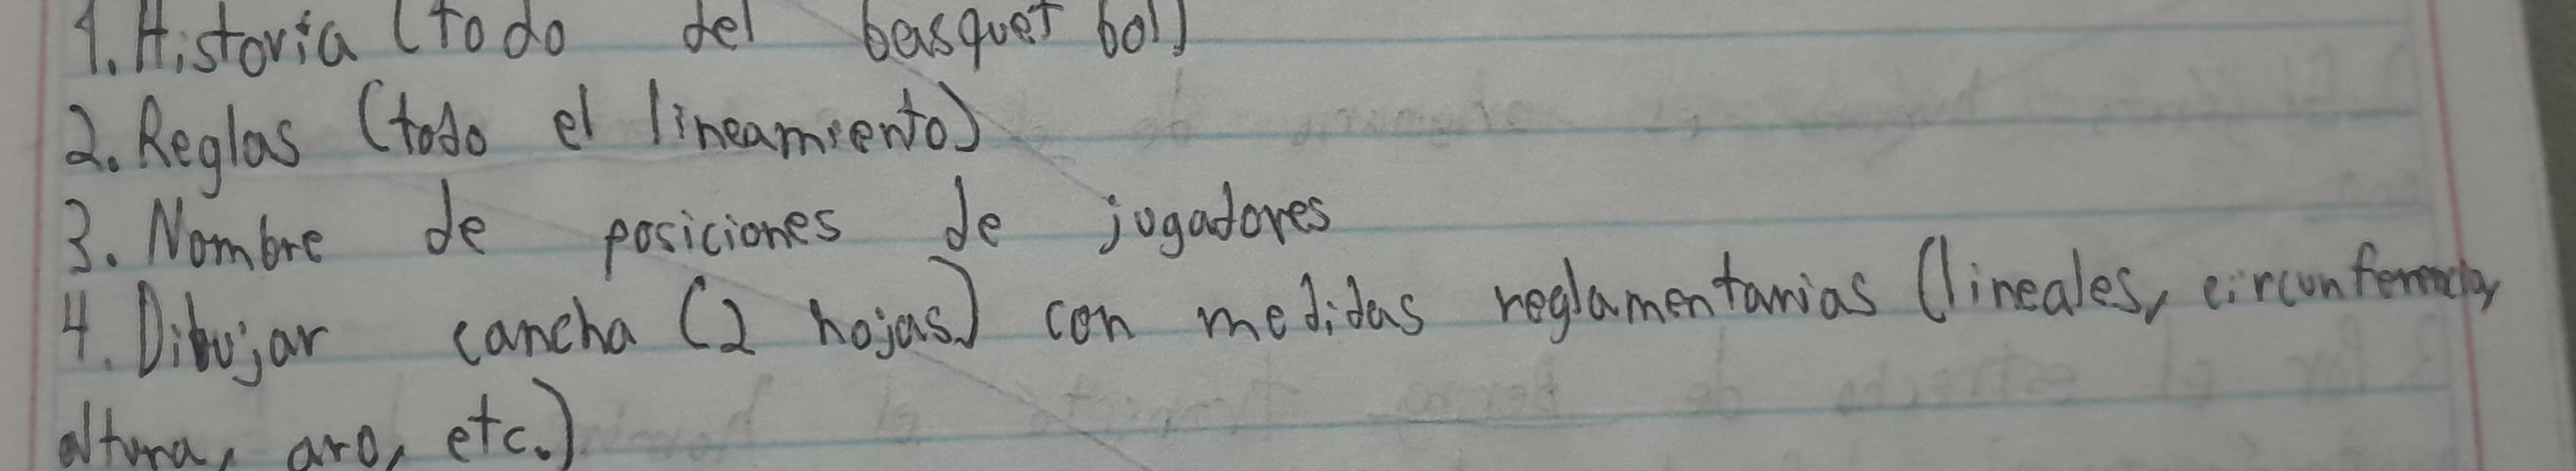 1. Historia (todo del basquet bol)
2. Reglas (todo el lineamiento)
3. Nombre de posiciones de jugadores
4. Dibujar cancha (2 hojas) con medidas reglamentarias (lineales, circunferencia,
altura, aro, etc.)